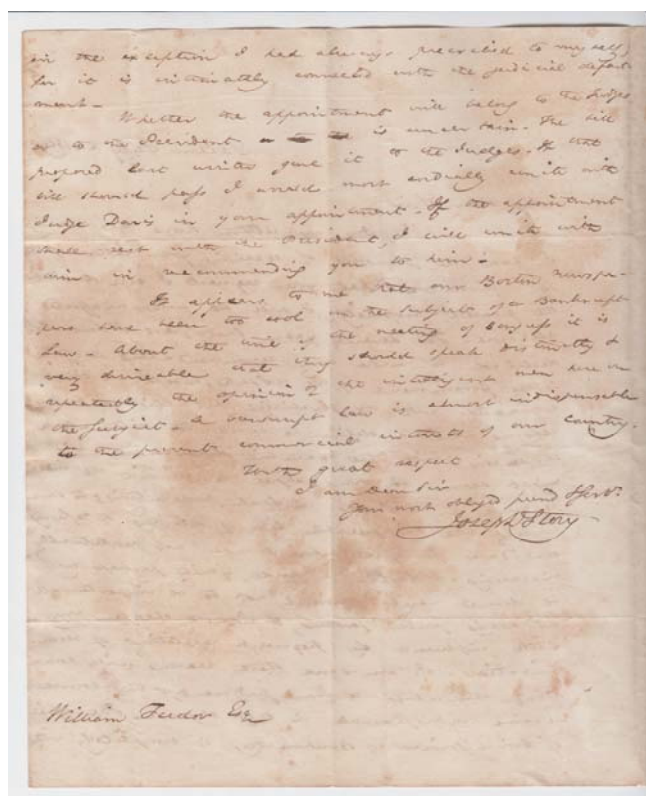 in the exception I had always prescribed to myself,
for it is intimately connected with the judicial depart
ment -
Whether the appointment will belong to the Judges
or to the President is uncertain. The bill
proposed last winter gave it to the Judges. If that
bill should pass I would most cordially unite with
Judge Davis in your appointment. If the appointment
shall rest with the President, I will unite with
him in recommending you to him.
It appears to me that our Boston newspa-
pers have been too cool on the subject of a Bankrupt
Law - About the time of the meeting of Congress it is
very desireable that they should speak distinctly &
repeatedly the opinion of the intelligent men here on
the subject - A bankrupt law is almost indispensable
to the present commercial interests of our Country.
With great respect
I am Dear Sir
Your most obliged friend & Servt.
Joseph Story
William Tudor Esq